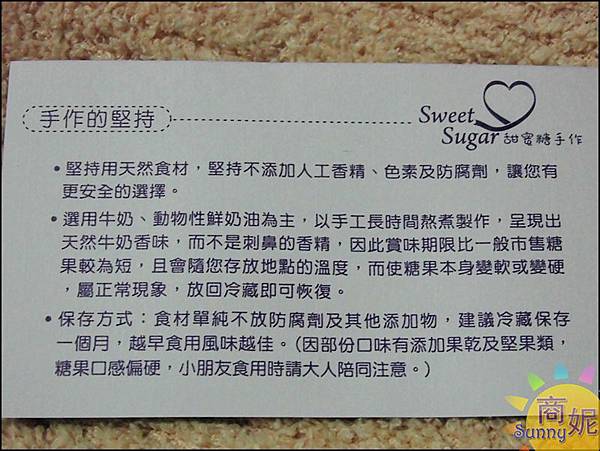 手作的堅持
Sweet
Sugar 甜蜜糖手作
•堅持用天然食材，堅持不添加人工香精、色素及防腐劑，讓您有
更安全的選擇。
•選用牛奶、動物性鮮奶油為主，以手工長時間熬煮製作，呈現出
天然牛奶香味，而不是刺鼻的香精，因此賞味期限比一般市售糖
果較為短，且會隨您存放地點的溫度，而使糖果本身變軟或變硬
，屬正常現象，放回冷藏即可恢復。
•保存方式：食材單純不放防腐劑及其他添加物，建議冷藏保存
一個月，越早食用風味越佳。(因部份口味有添加果乾及堅果類，
糖果口感偏硬，小朋友食用時請大人陪同注意。)
商妮
Sunny